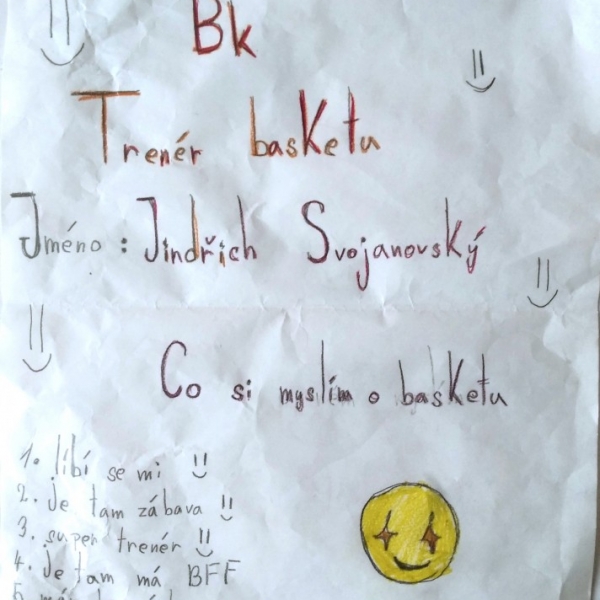 Bk
Trenér basketu
Jméno : Jindřich Svojanovský
Co si myslím o basketu
1. líbí se mi
2. Je tam zábava
3. super trenér
4. Je tam má BFF
5.